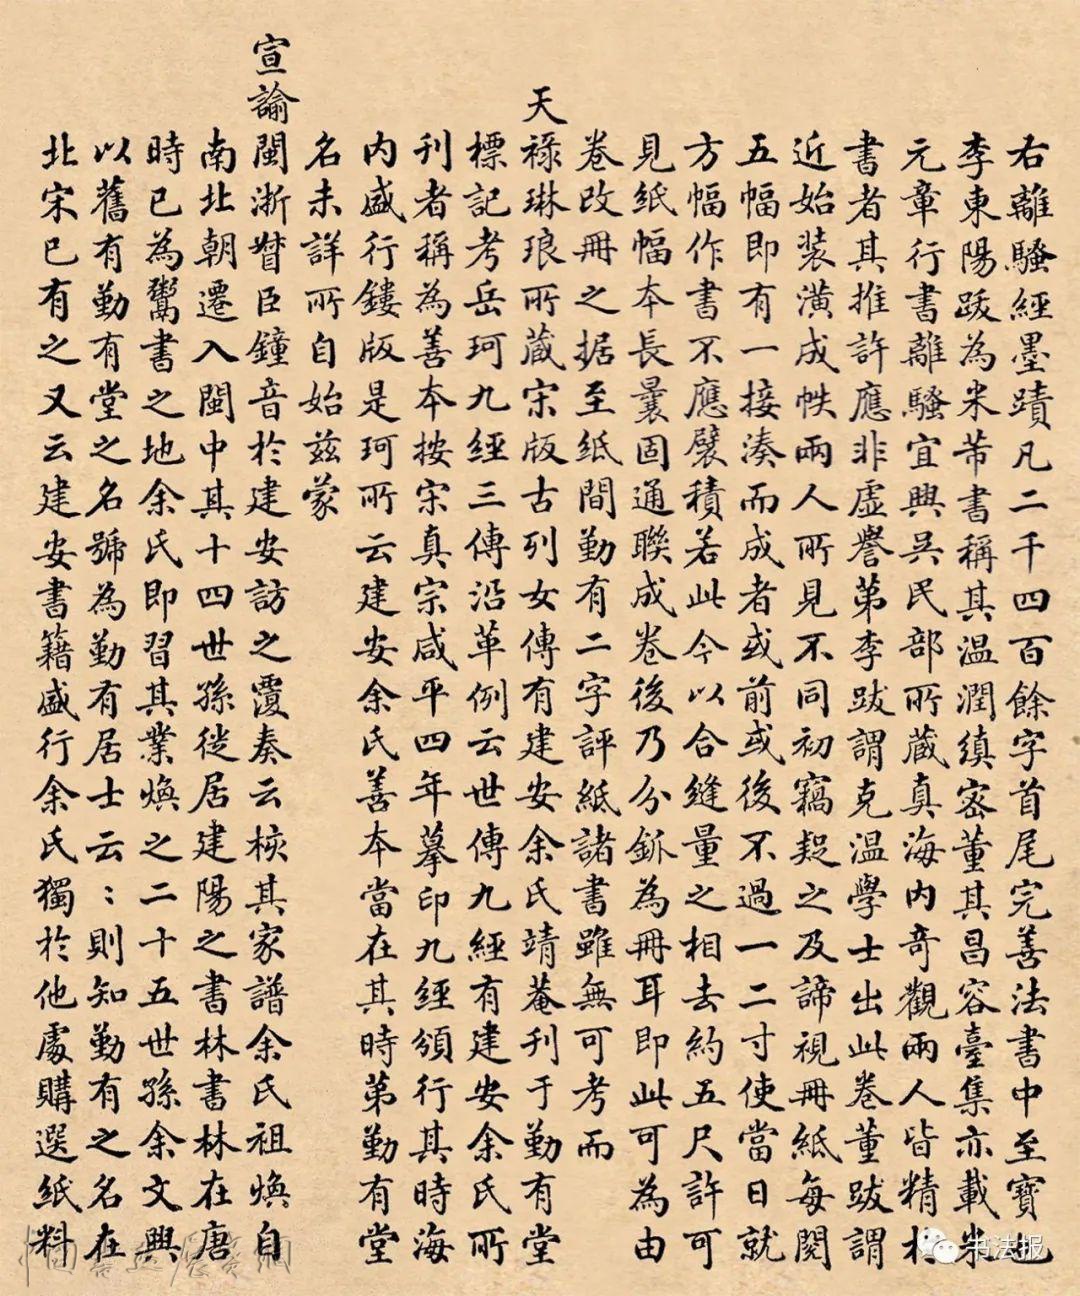 右離騷經墨蹟凡二千四百餘字首尾完善法書中至寶也
李東陽跋為米芾書稱其温潤縝密董其昌容臺集亦載米
元章行書離騷宜興吳民部所藏真海内竒觀兩人皆精於
書者其推許應非虛譽第李跋謂克温學士出此卷董跋謂
近始装潢成帙兩人所見不同初竊疑之及諦視冊紙每閱
五幅即有一接湊而成者或前或後不過一二寸使當日就
方幅作書不應襞積若此今以合縫量之相去約五尺許可
見紙幅本長曩固通聯成卷後乃分𨥧為冊耳即此可為由
卷改冊之据至紙間勤有二字評紙諸書雖無可考而
天禄琳琅所藏宋版古列女傳有建安余氏靖菴刊于勤有堂
標記考岳珂九經三傳沿革例云世傳九經有建安余氏所
刊者稱為善本按宋真宗咸平四年摹印九經頒行其時海
内盛行鏤版是珂所云建安余氏善本當在其時第勤有堂
名未詳所自始兹蒙
宣諭閩浙督臣鐘音於建安訪之覆奏云核其家譜余氏祖煥自
南北朝遷入閩中其十四世孫徙居建陽之書林書林在唐
時已為鬻書之地余氏即習其業煥之二十五世孫余文興
以舊有勤有堂之名號為勤有居士云：則知勤有之名在
北宋已有之又云建安書籍盛行余氏獨於他處購選紙料
书法报